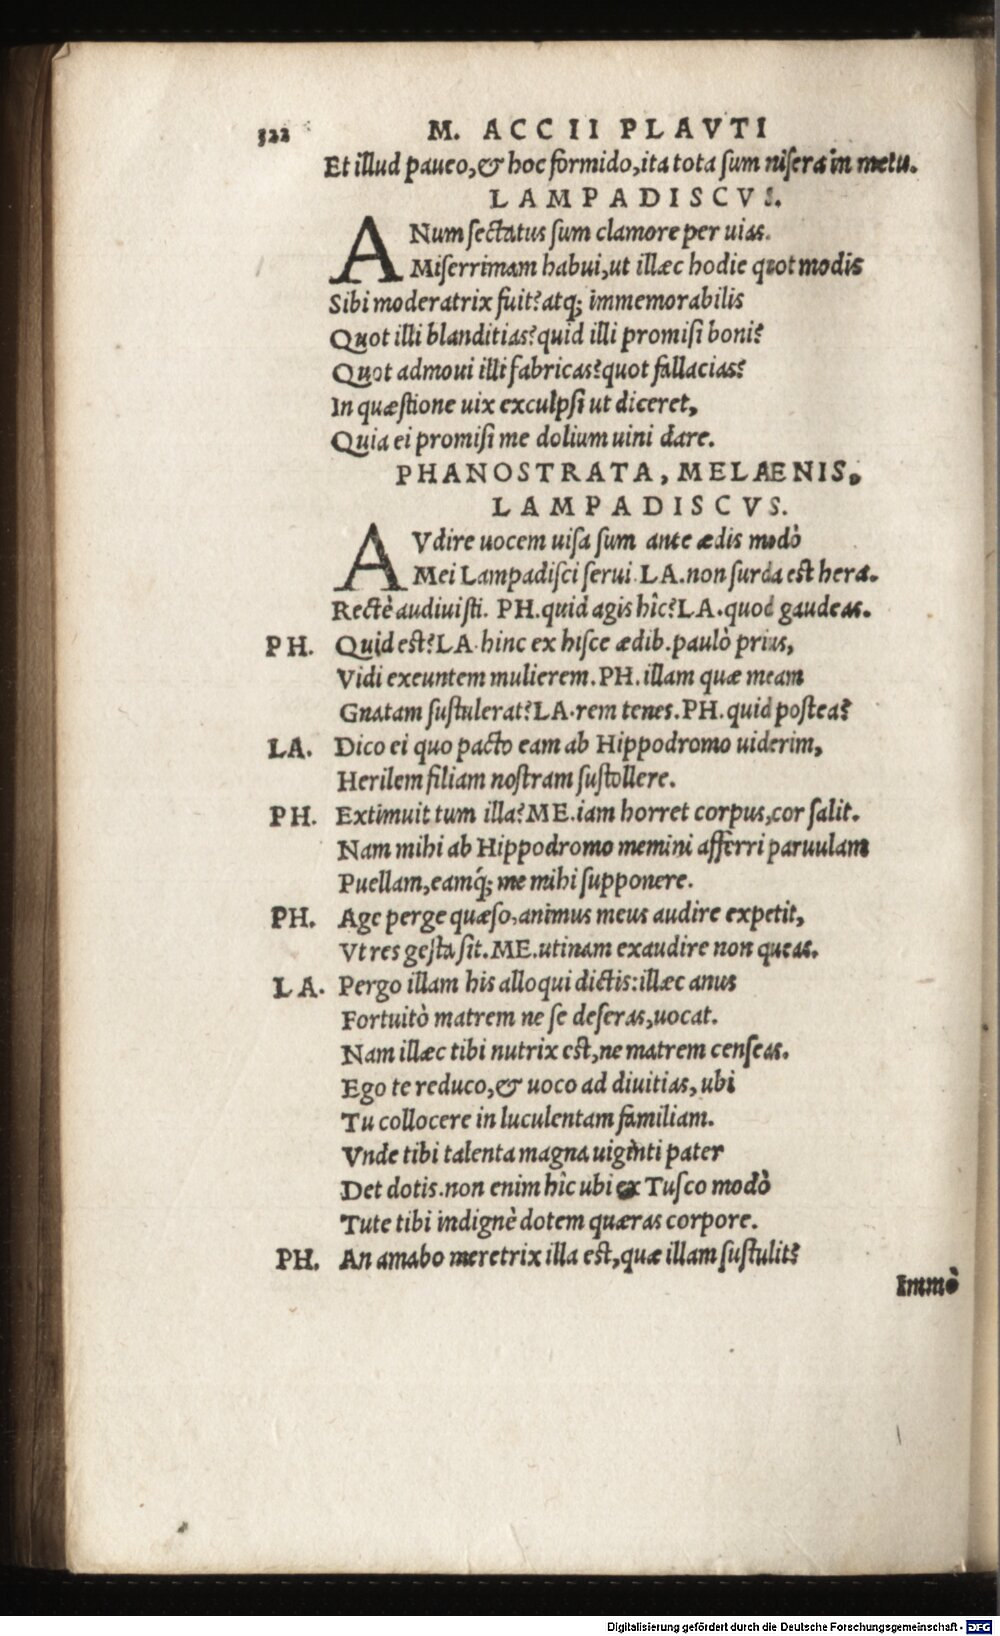 322 M. ACCII PLAVTI
Et illud paueo,& hoc formido,ita tota sum misera in metu.
LAMPADISCVS.
ANum sectatus sum clamore per uias.
Miserrimam habui,ut illæc hodie quot modis
Sibi moderatrix fuit?atq; immemorabilis
Quot illi blanditias?quid illi promisi boni?
Quot admoui illi fabricas?quot fallacias?
In quæstione uix exculpsi ut diceret,
Quia ei promisi me dolium uini dare.
PHANOSTRATA, MELÆNIS,
LAMPADISCVS.
AVdire uocem uisa sum ante ædis modò
Mei Lampadisci serui. LA.non surda est hera.
Rectè audiuisti. PH.quid agis hîc?LA.quod gaudeas.
PH. Quid est?LA.hinc ex hisce ædib.paulò prius,
Vidi exeuntem mulierem.PH.illam quæ meam
Gnatam sustulerat?LA.rem tenes.PH.quid postea?
LA. Dico ei quo pacto eam ab Hippodromo uiderim,
Herilem filiam nostram sustollere.
PH. Extimuit tum illa?ME.iam horret corpus,cor salit.
Nam mihi ab Hippodromo memini afferri paruulam
Puellam,eamq́; me mihi supponere.
PH. Age perge quæso,animus meus audire expetit,
Vt res gesta sit.ME.utinam exaudire non queas.
LA. Pergo illam his alloqui dictis:illæc anus
Fortuitò matrem ne se deseras,uocat.
Nam illæc tibi nutrix est,ne matrem censeas.
Ego te reduco,& uoco ad diuitias, ubi
Tu collocere in luculentam familiam.
Vnde tibi talenta magna uiginti pater
Det dotis.non enim hîc ubi ex Tusco modò
Tute tibi indignè dotem quæras corpore.
PH. An amabo meretrix illa est,quæ illam sustulit?
Immò
Digitalisierung gefördert durch die Deutsche Forschungsgemeinschaft - DFG